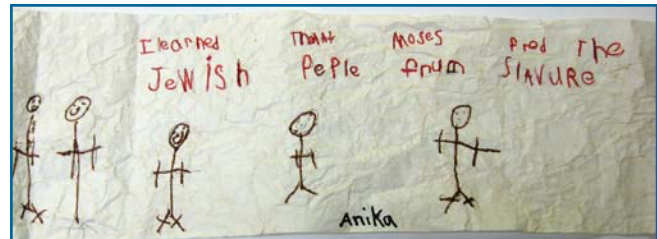 I learned thaat Moses fred The
JeWish Peple frum SlAVURe
Anika